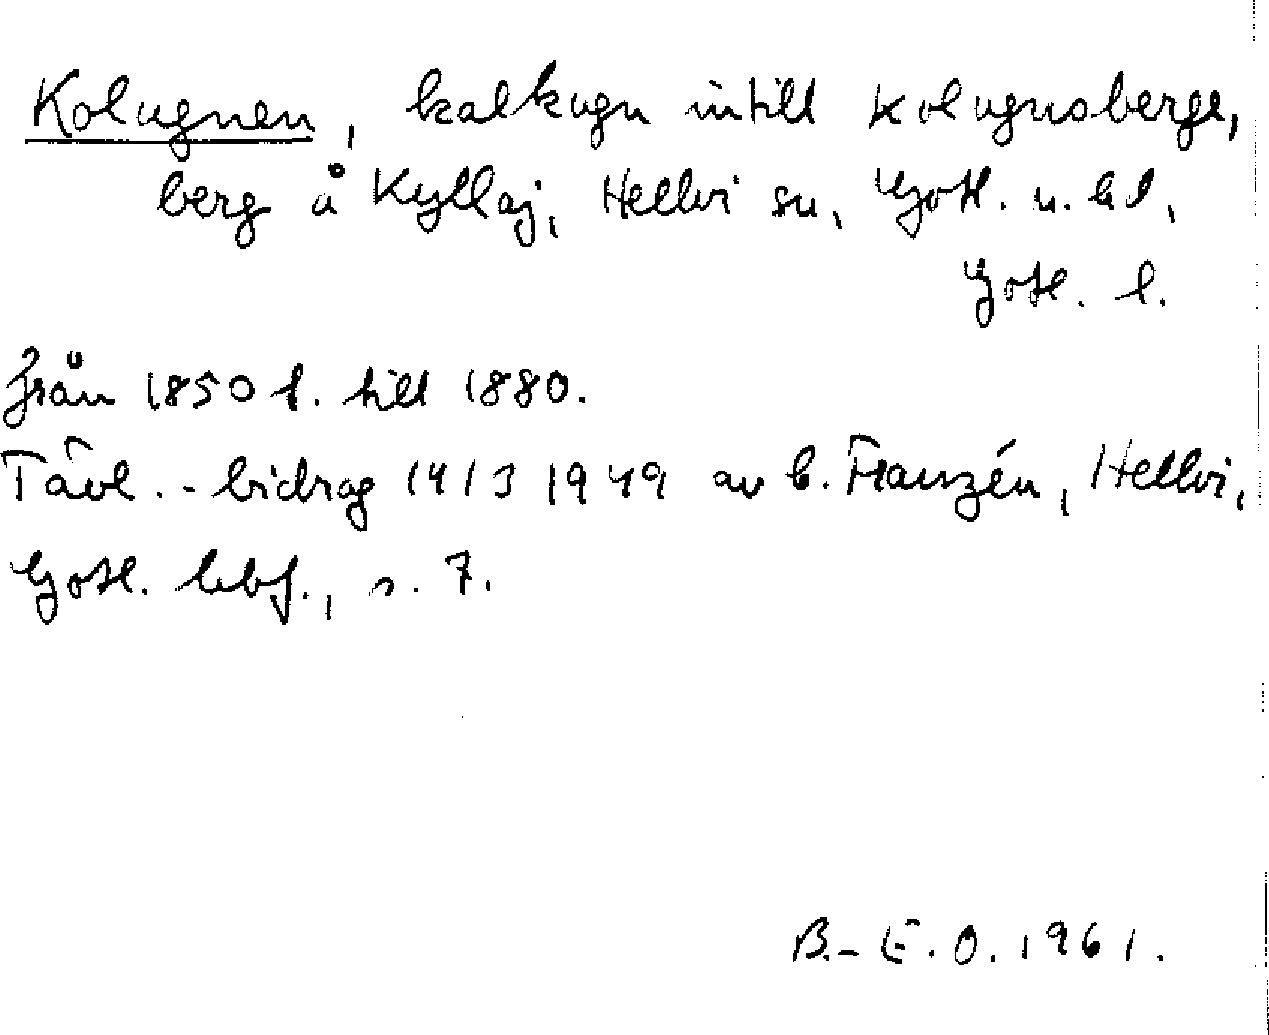 Kolugnen, kalkugn intill Kolugnsberge,
berg å Kyllaj, Hellvi sn, Gotl. n. hd,
Gotl. l.
från 1850 t. till 1880.
Tävl.-bidrag 14/3 1949 av B. Franzén, Hellvi,
Gotl. lbf., s. 7.
B.-E.O. 1961.